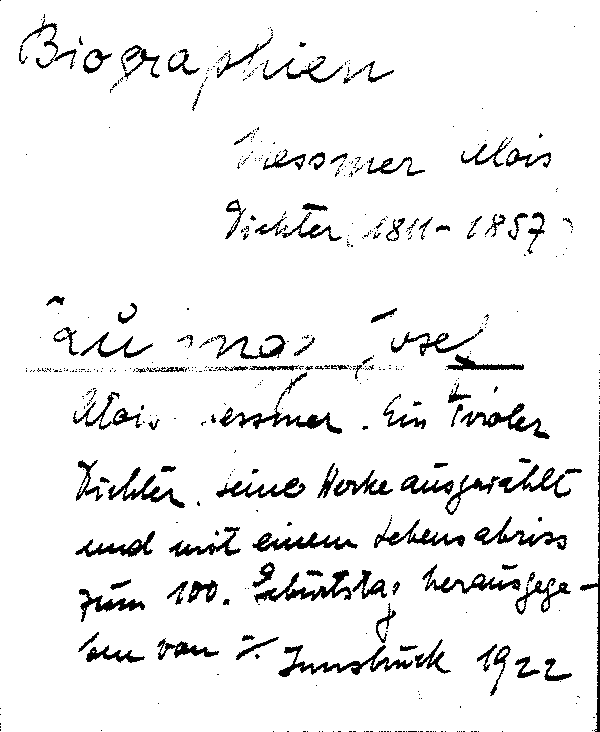 Biographien
Messmer Alois
Dichter (1811-1857)
Josef
Alois Messmer. Ein Tiroler
Dichter. Seine Werke ausgewählt
und mit einem Lebensabriss
zum 100. Geburtstag herausgege-
ben von %. Innsbruck 1922